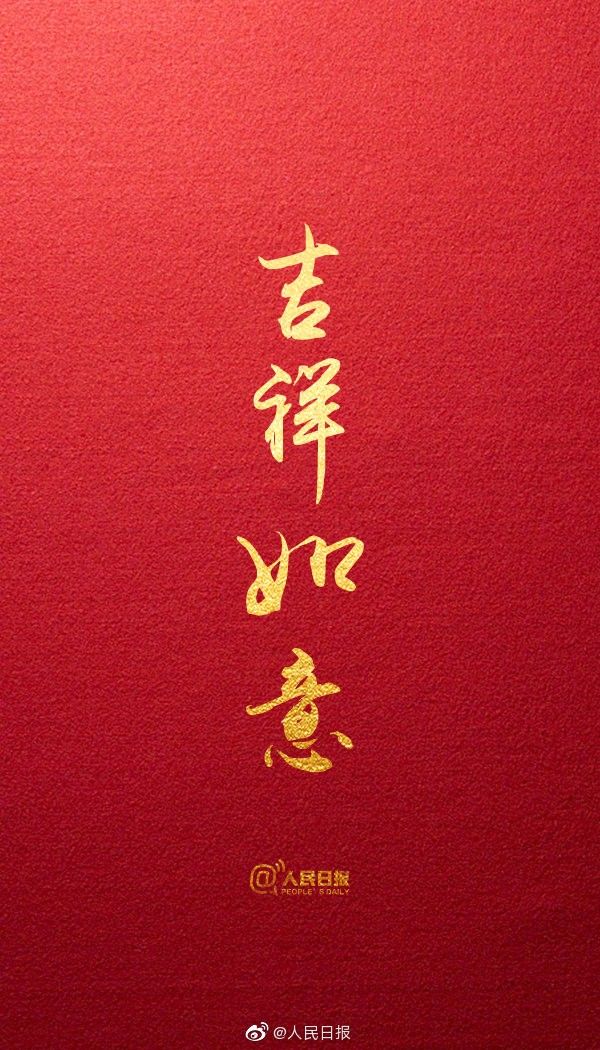 吉祥如意
@人民日报
PEOPLE'S DAILY
@人民日报